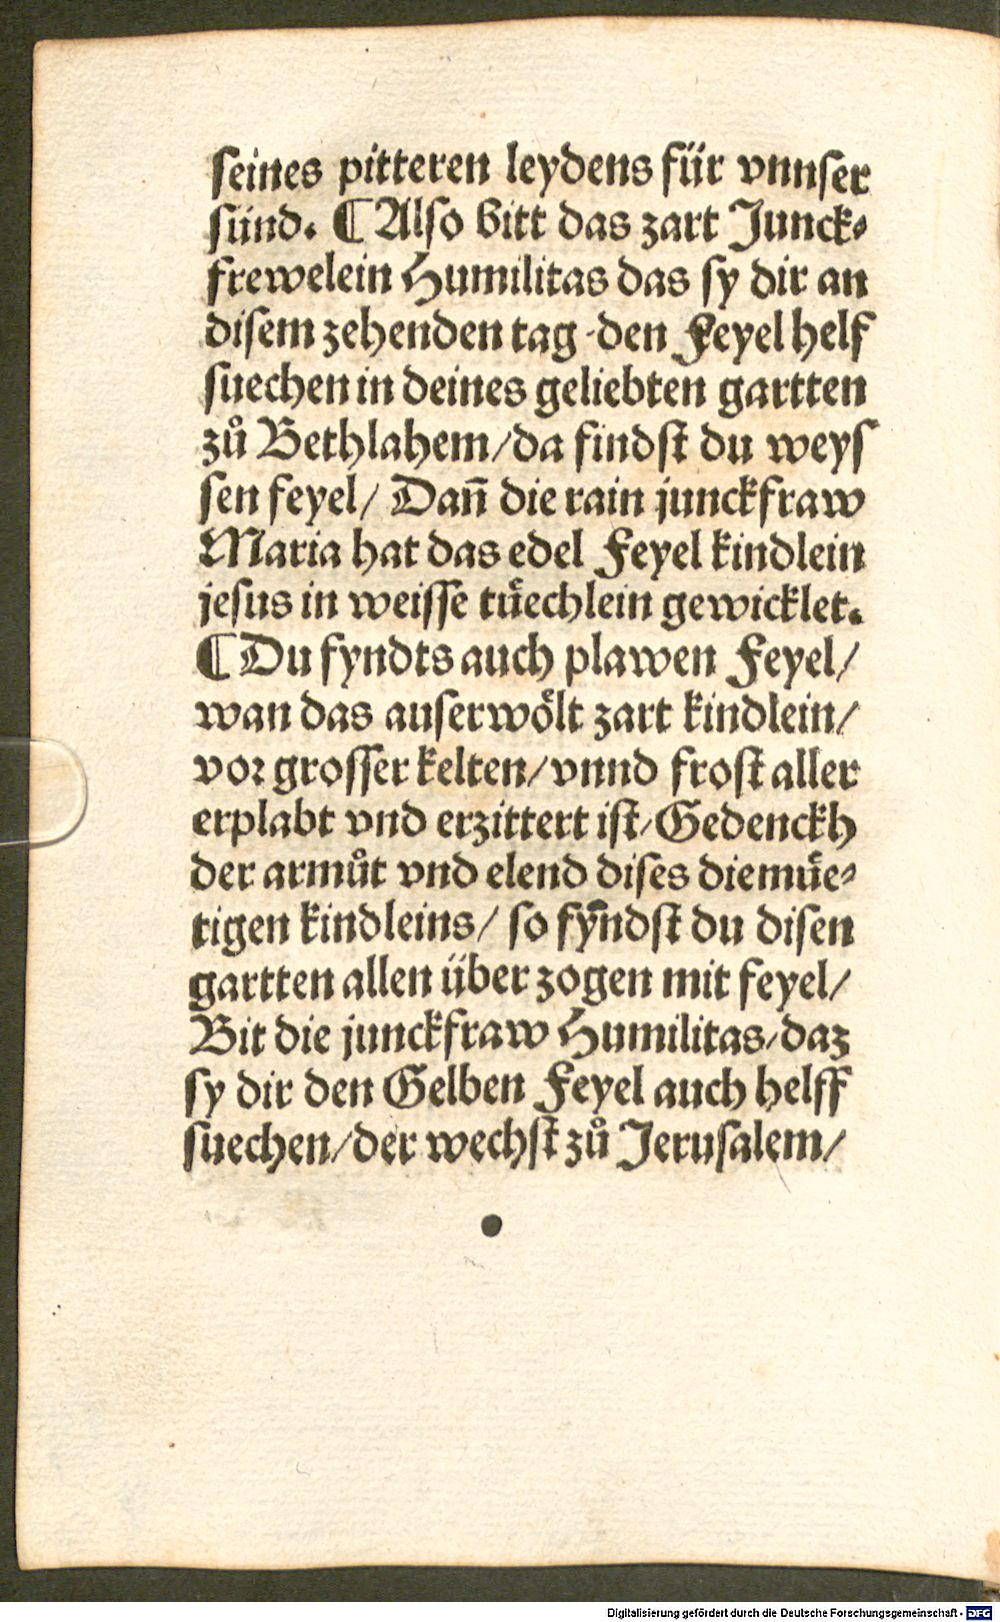 seines pitteren leydens für vnnser
sünd. ¶ Also bitt das zart Junck⸗
frewelein Humilitas das sy dir an
disem zehenden tag den Feyel helf
suechen in deines geliebten gartten
zů Bethlahem/da findst du weys
sen feyel/ Dañ die rain junckfraw
Maria hat das edel Feyel kindlein
jesus in weisse tuͤechlein gewicklet.
¶ Du fyndts auch plawen Feyel/
wan das auserwoͤlt zart kindlein/
vor grosser kelten/vnnd frost aller
erplabt vnd erzittert ist/Gedenckh
der armůt vnd elend dises diemuͤe⸗
tigen kindleins/ so fyndst du disen
gartten allen über zogen mit feyel/
Bit die junckfraw Humilitas/daz
sy dir den Gelben Feyel auch helff
suechen/der wechst zů Jerusalem/
Digitalisierung gefördert durch die Deutsche Forschungsgemeinschaft - DFG